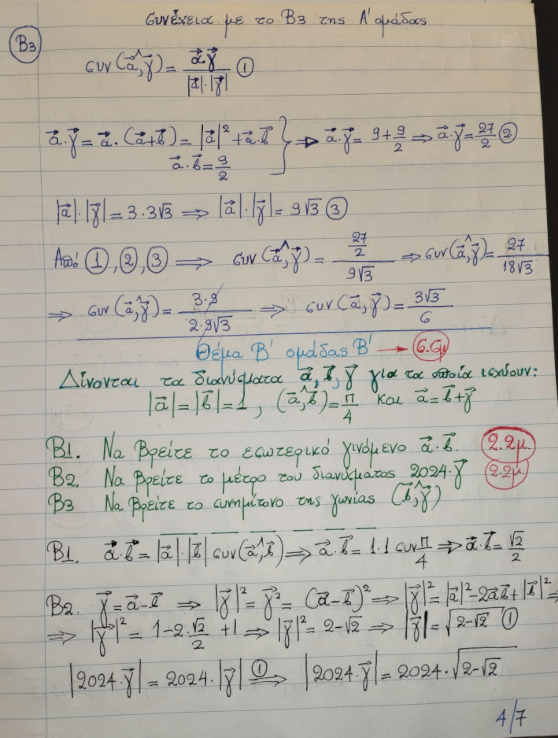 συνέχεια με το Β3 της Α' ομάδας
Β3
συν(α,γ) = α·γ / |α|·|γ| ①
α·γ = α·(α+β) = |α|² + α·β
α·β = 9/2 } ⇒ α·γ = 9 + 9/2 ⇒ α·γ = 27/2 ②
|α|·|γ| = 3·3√3 ⇒ |α|·|γ| = 9√3 ③
Από ①,②,③ ⇒ συν(α,γ) = 27/2 / 9√3 ⇒ συν(α,γ) = 27/18√3
⇒ συν(α,γ) = 3·9/2·9√3 ⇒ συν(α,γ) = 3√3/6
Θέμα Β' ομάδας Β' →
Δίνονται τα διανύσματα α, β, γ για τα οποία ισχύουν:
|α| = |β| = 1, (α,β) = π/4 και α = β + γ
Β1. Να βρείτε το εσωτερικό γινόμενο α·β. 2.2μ.
Β2. Να βρείτε το μέτρο του διανύσματος 2024·γ 2.2μ
Β3 Να βρείτε το συνημίτονο της γωνίας (β,γ)
Β1. α·β = |α|·|β| συν(α,β) ⇒ α·β = 1·1 συν π/4 ⇒ α·β = √2/2
Β2. γ = α - β ⇒ |γ|² = γ² = (α-β)² ⇒ |γ|² = |α|² - 2αβ + |β|² ⇒
⇒ |γ|² = 1 - 2·√2/2 + 1 ⇒ |γ|² = 2 - √2 ⇒ |γ| = √(2-√2) ①
|2024·γ| = 2024·|γ| ①⇒ |2024·γ| = 2024·√(2-√2)
4/7